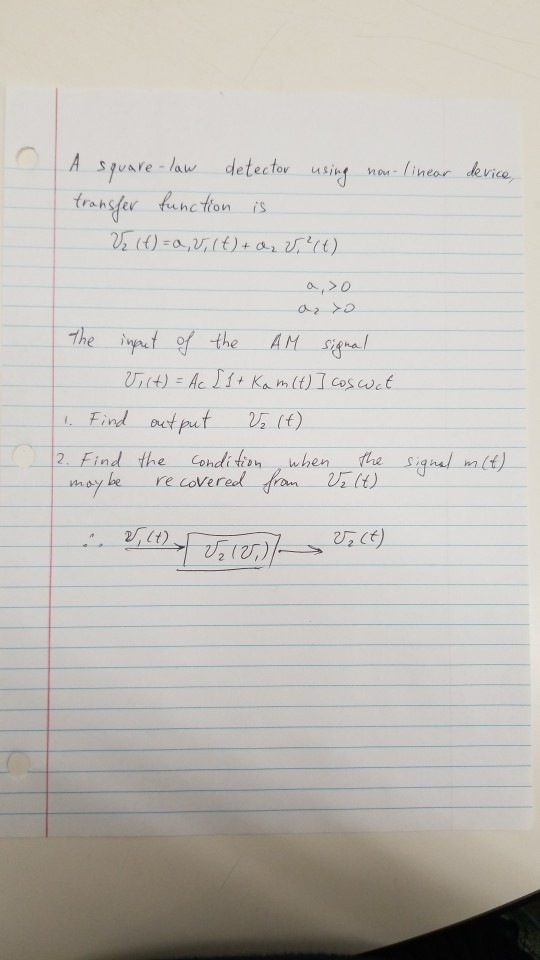 A square-law detector using non-linear device,
transfer function is
V₂(t) = a₁V₁(t) + a₂ V₁²(t)
a₁>0
a₂ >0
The input of the AM signal
V₁(t) = Ac [1+ Ka m(t)] cos ωct
1. Find output V₂ (t)
2. Find the condition when the signal m(t)
may be recovered from V₂(t)
∴ V₁(t) → V₂(V₁) → V₂(t)